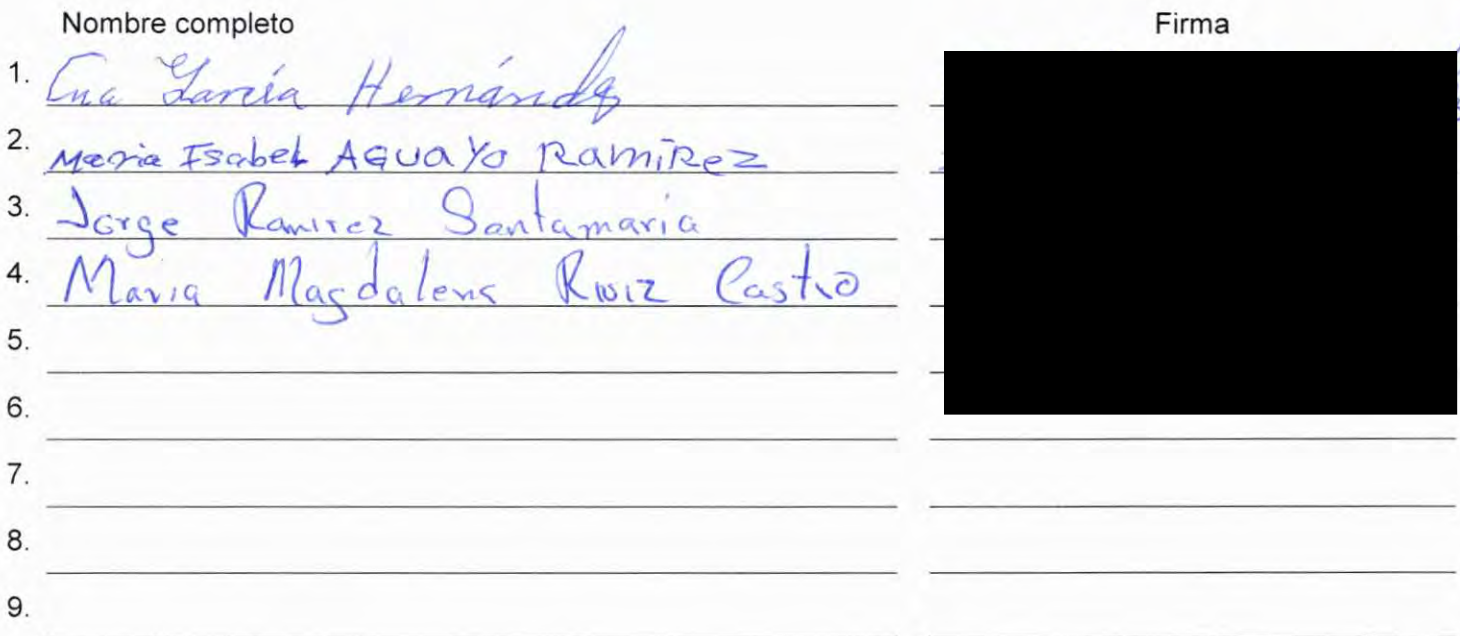 Nombre completo Firma
1. Eva García Hernández
2. Maria Isabel AGUAYO RamíRez
3. Jorge Ramirez Santamaria
4. Maria Magdalena Ruiz Castro
5.
6.
7.
8.
9.